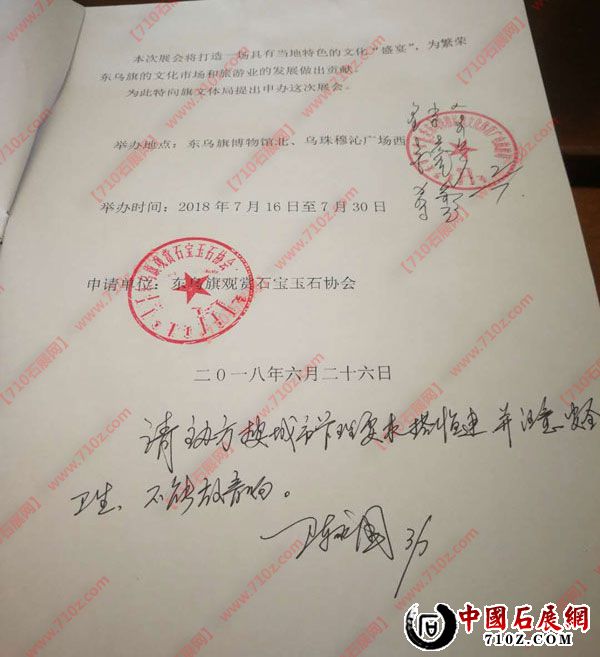 本次展会将打造一场具有当地特色的文化“盛宴”，为繁荣
东乌旗的文化市场和旅游业的发展做出贡献。
为此特向旗文体局提出申办这次展会。
举办地点：东乌旗博物馆北、乌珠穆沁广场西
举办时间：2018年7月16日至7月30日
东乌旗观赏石宝玉石协会
申请单位：东乌旗观赏石宝玉石协会
二〇一八年六月二十六日
请主办方按城市管理要求搭 建 并注意安全
卫生，不能放音响。
3/7
【710石展网】www.710z.com
中國石展網
710Z.COM